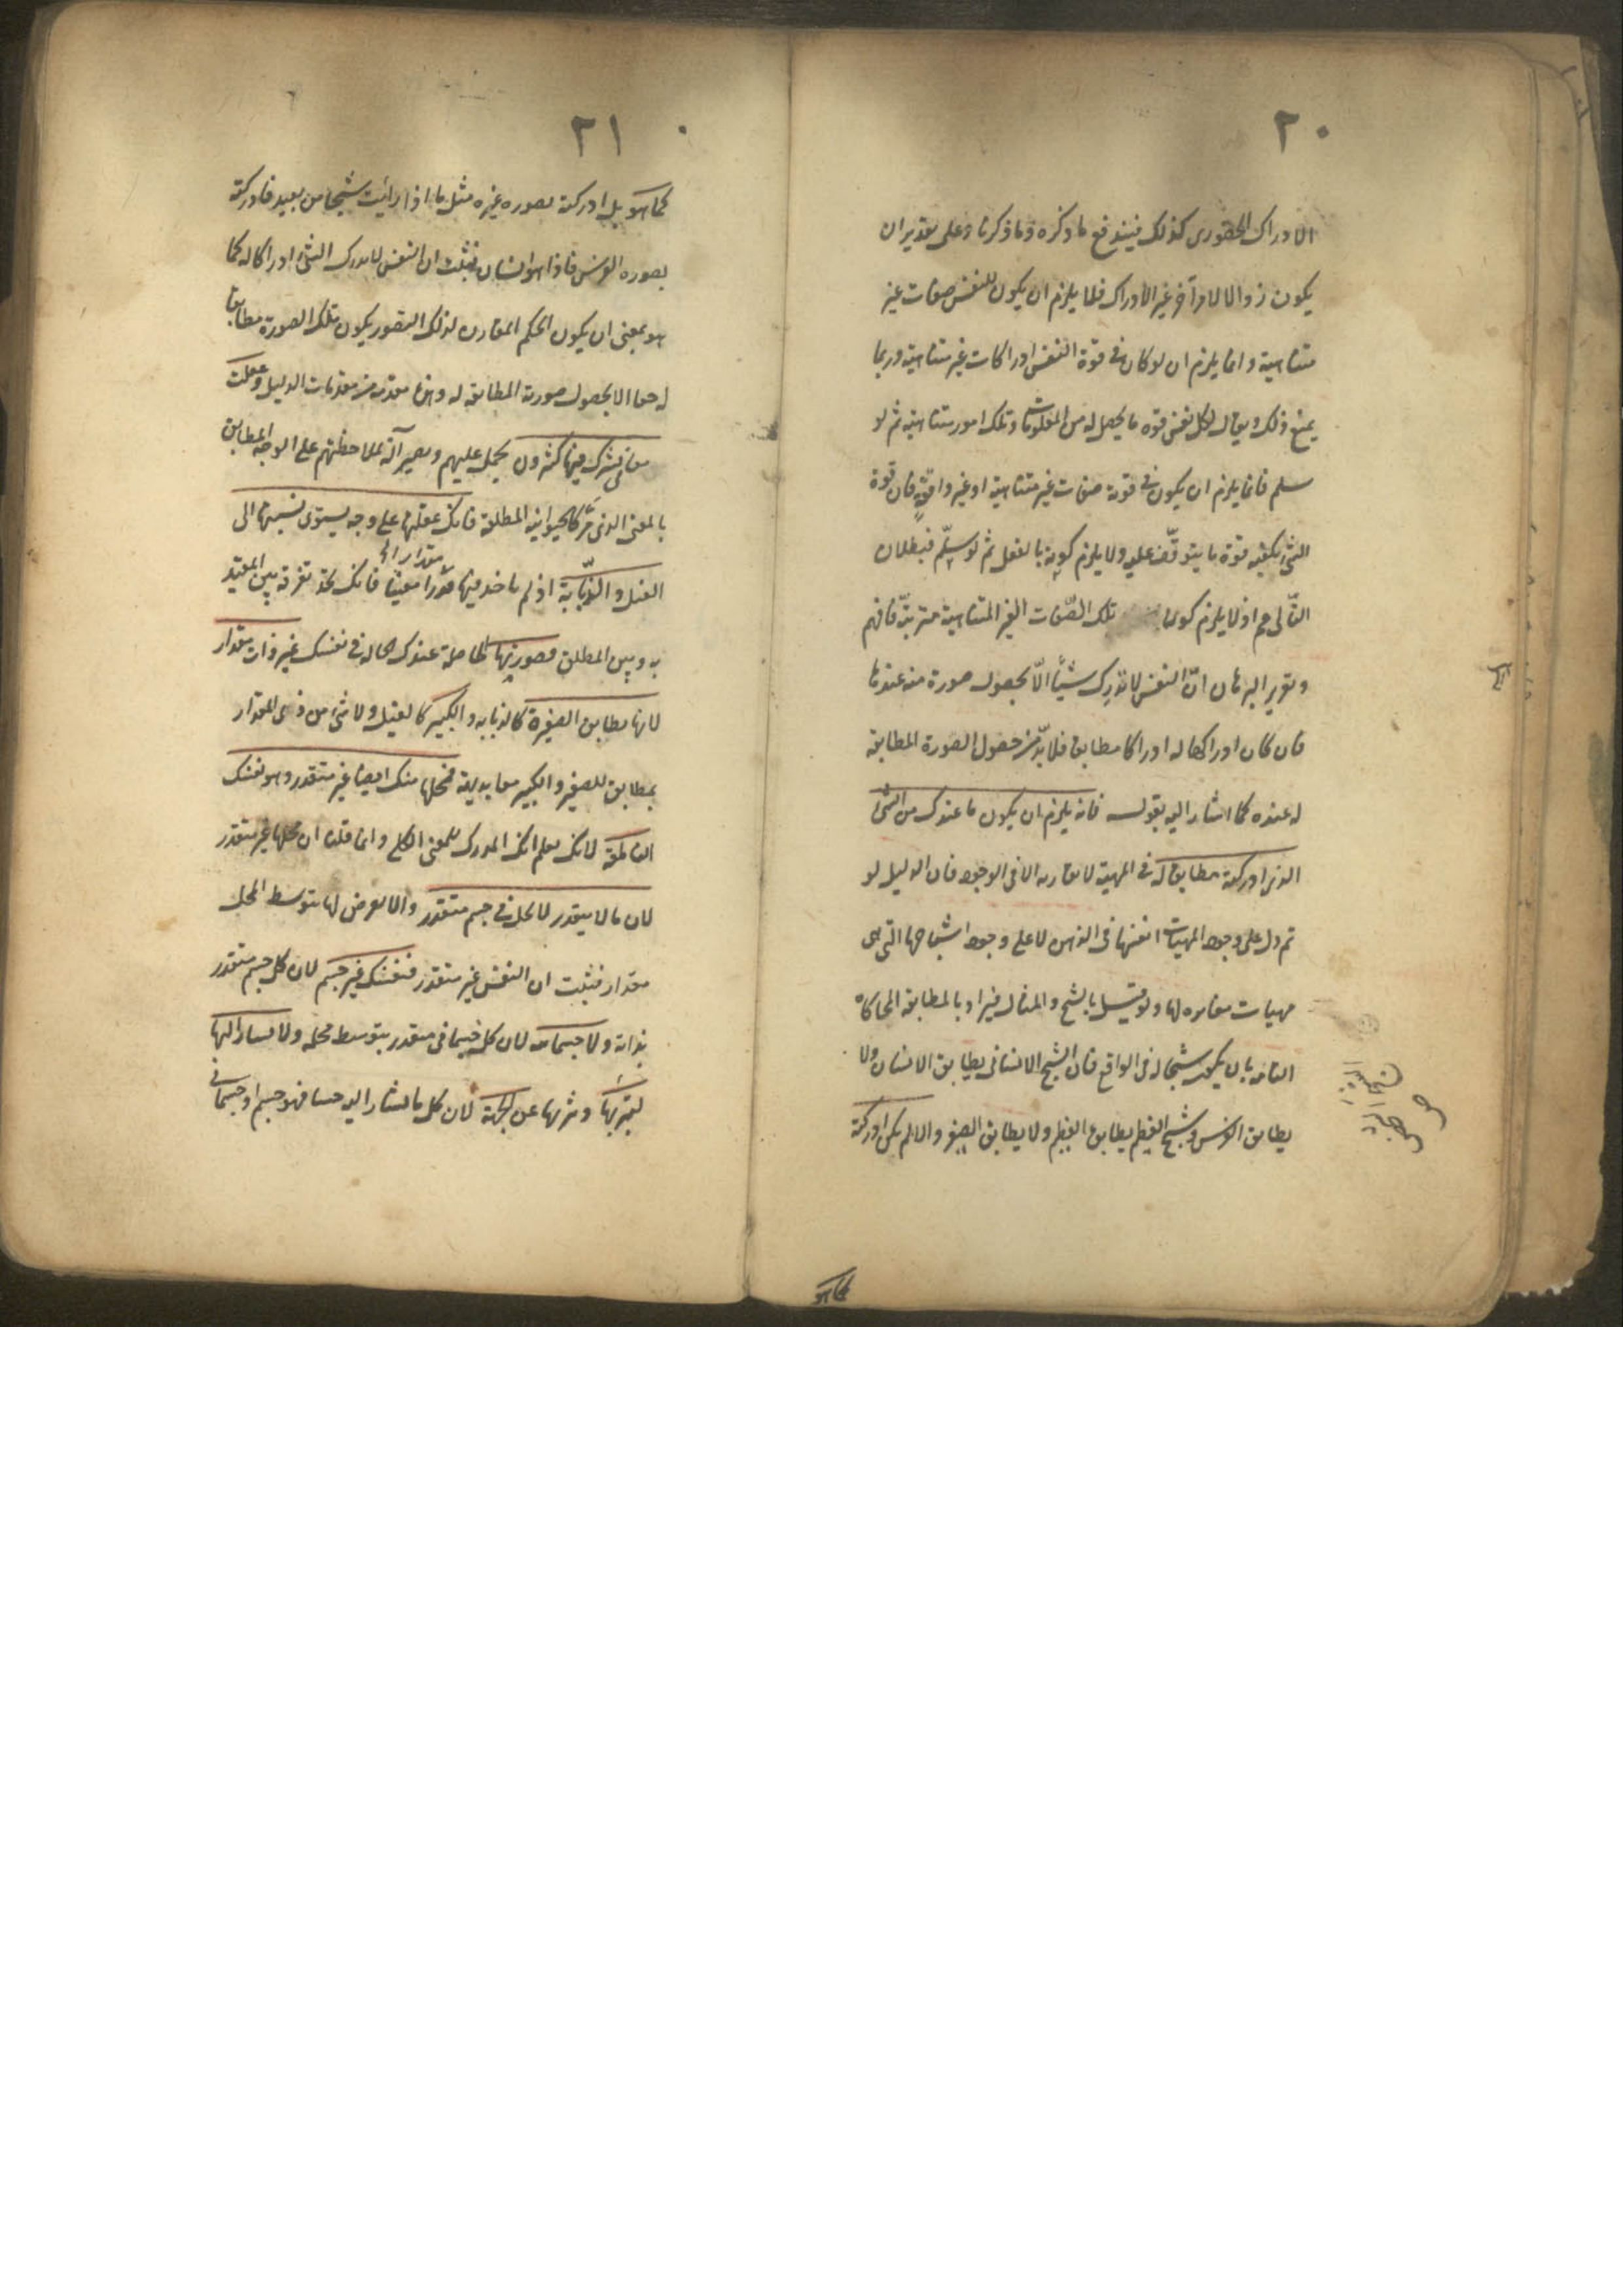 ٢٠
الادراك الحضورى كذلك فيندفع ما ذكره وما ذكرنا وعلى تقدير ان
يكون زوالا لامر آخر غير الادراك فلا يلزم ان يكون للنفس صفات غير
متناهية وانما يلزم ان لو كان فى قوة النفس ادراكات غير متناهية وربما
يمنع ذلك ويقال لكل نفس قوة ما يحصل له من المعلومات وتلك امور متناهية ثم لو
سلم فانما يلزم ان يكون فى قوته صفات غير متناهية او غير واقفة فان قوة
الشئ يكفيه قوة ما يتوقف عليه ولا يلزم كونه بالفعل ثم لو سلّم فبطلان
التّالى مم اذ لا يلزم كون تلك الصّفات الغير المتناهية مترتبة فافهم
وتقرير البرهان انّ النفس لا تدرك شيئًا الّا بحصول صورة منه عندها
فان كان ادراكها له ادراكا مطابقا فلا بدّ من حصول الصورة المطابقة
له عنده كما اشار اليه بقوله فانه يلزم ان يكون ما عندك من الشئ
الذى ادركته مطابقا له فى المهية لا يقاربه الا فى الوجود فان الدليل لو
تم دل على وجود المهيات انفسها فى الذهن لا على وجود اشباحها التى هى
مهيات مغايره لها ولو قيل بالشبح والمثال فيراد بالمطابقة المحاكاة
التامة بان يكون شبحا له فى الواقع فان الشبح الانسانى يطابق الانسان ولا
يطابق الفرس وشبح العظيم يطابق العظيم ولا يطابق الصغير والا لم يكن ادركته
كما هو
٢١
كما هو بل ادركته بصوره غيره مثل ما اذا رأيت شبحا من بعيد فادركته
بصوره الفرس فاذا هو انسان فثبت ان النفس لا يدرك الشئ ادراكا له كما
هو بمعنى ان يكون الحكم المقارن لذلك التصور يكون تلك الصورة مطابقا
له حقا الا بحصول صورة المطابقة له وهذا مقدمه من مقدمات الدليل وعقلت
معانى يشترك فيها كثيرون يحمل عليهم ويصير آلة لملاحظتهم على الوجه المطابق
بالمعنى الذى مرّ كالحيوانيه المطلقة فانك عقلتها على وجه يستوى نسبتها الى
الفيل والذّبابة اذ لم ياخذ فيها مقدارا معينا فانك تجد تفرقة بين المقيد
به وبين المطلق فصورتها الحاصلة عندك الحالة فى نفسك غير ذات مقدار
لانها مطابق الصغيرة كالذبابه والكبير كالفيل ولا شئ من ذى المقدار
بمطابق للصغير والكبير معا بديهة فمحلها منك ايضا غير متقدر وهو نفسك
الناطقة لانك تعلم انك المدرك للمعنى الكلى وانما قلنا ان محلها غير متقدر
لان ما لا يتقدر لا يحل فى جسم متقدر والا يعرض لها بتوسط المحل
مقدار فثبت ان النفس غير متقدر فنفسك غير جسم لان كل جسم متقدر
بذاته ولا جسمانية لان كل جسمانى متقدر بتوسط محله ولا يشار اليها
لتبرّيها وتنزهها عن الجهة لان كل ما يشار اليه حسا فهو جسم او جسمانى